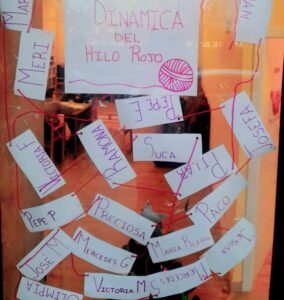 MAR
MERI
DINAMICA
DEL
HILO ROJO
PEPE E.
JOSEFA
VICTORIA F.
RAMONA
SUCA
PILAR
PEPE P.
PRECIOSA
PACO
JOSE M
MERCEDES G
OLIMPIA
VICTORIA M
MERCEDES